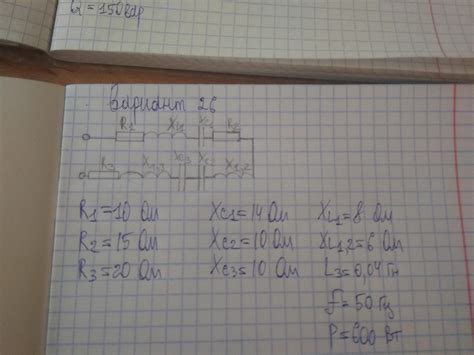 Q = 150 вар
Вариант 26
R1 XL1 XC1 R2
R3 XL3 XC3 XC2 XL2
R1=10 Ом XC1=14 Ом XL1=8 Ом
R2=15 Ом XC2=10 Ом XL1,2=6 Ом
R3=20 Ом XC3=10 Ом L3=0,04 Гн
f=50 Гц
P=600 Вт